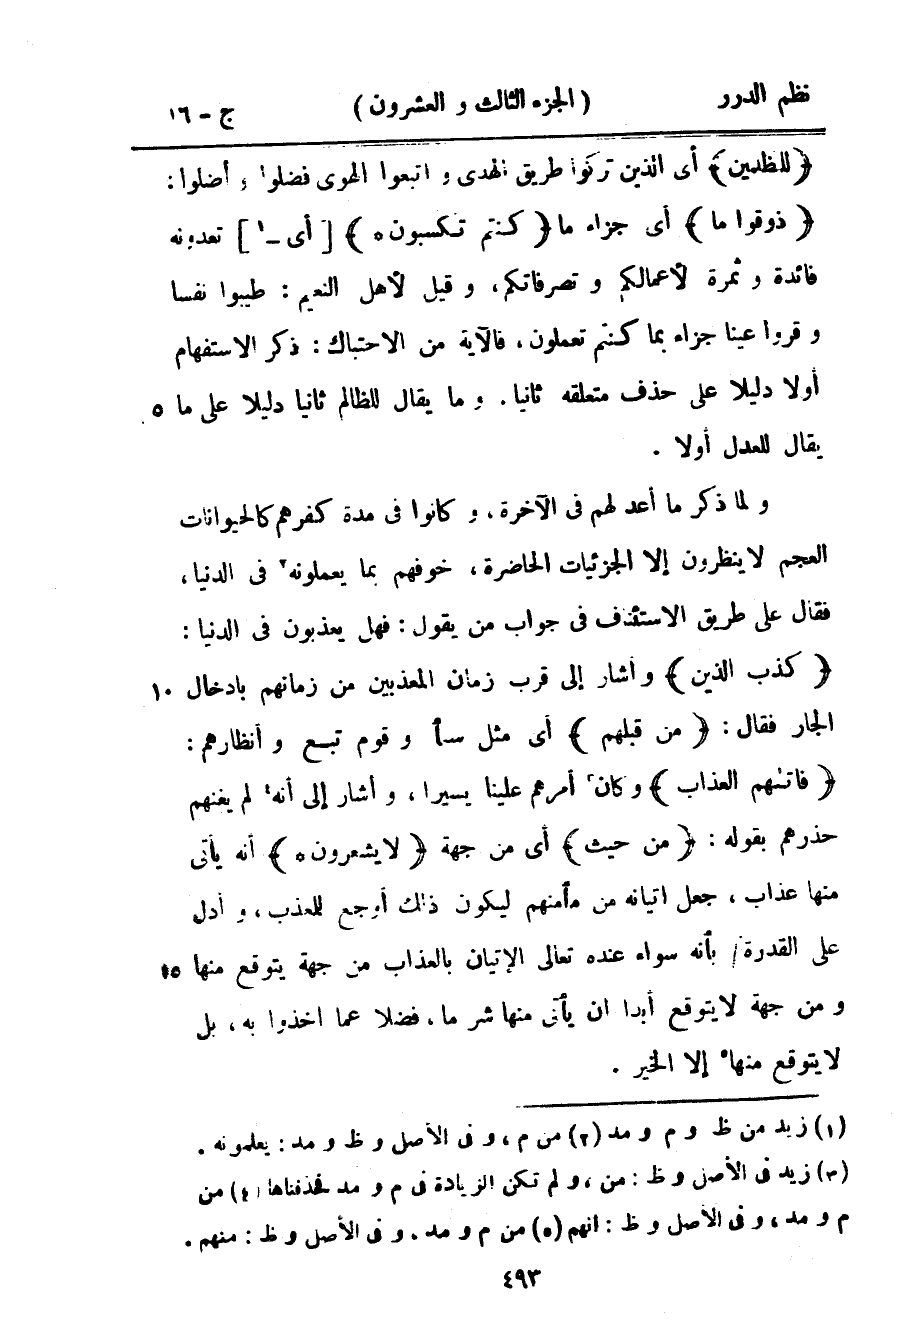 نظم الدرر ( الجزء الثالث و العشرون ) ج - ١٦
﴿ للظلمين ﴾ أى الذين تركوا طريق الهدى و اتبعوا الهوى فضلوا و أضلوا :
﴿ ذوقوا ما ﴾ أى جزاء ما ﴿ كنتم تكسبون ه ﴾ [ أى -١ ] تعدونه
فائدة و ثمرة لأعمالكم و تصرفاتكم ، و قيل لأهل النعيم : طيبوا نفسا
و قروا عينا جزاء بما كنتم تعملون ، فالآية من الاحتباك : ذكر الاستفهام
أولا دليلا على حذف متعلقه ثانيا . و ما يقال للظالم ثانيا دليلا على ما ٥
يقال للعدل أولا .
و لما ذكر ما أعد لهم فى الآخرة ، و كانوا فى مدة كفرهم كالحيوانات
العجم لا ينظرون إلا الجزئيات الحاضرة ، خوفهم بما يعملونه٢ فى الدنيا ،
فقال على طريق الاستئنف فى جواب من يقول : فهل يعذبون فى الدنيا :
﴿ كذب الذين ﴾ و أشار إلى قرب زمان المعذبين من زمانهم بادخال ١٠
الجار فقال : ﴿ من قبلهم ﴾ أى مثل سبأ و قوم تبع و أنظارهم :
﴿ فاتىٰهم العذاب ﴾ و كان٣ أمرهم علينا يسيرا ، و أشار إلى أنه٤ لم يغنهم
حذرهم بقوله : ﴿ من حيث ﴾ أى من جهة ﴿ لا يشعرون ه ﴾ أنه يأتى
منها عذاب ، جعل اتيانه من مأمنهم ليكون ذلك أوجع للمعذب ، و أدل
على القدرة / بأنه سواء عنده تعالى الإتيان بالعذاب من جهة يتوقع منها ١٥
و من جهة لا يتوقع أبدا ان يأتى منها شر ما ، فضلا عما اخذوا به ، بل
لا يتوقع منها٥ إلا الخير .
(١) زيد من ظ و م و مد (٢) من م ، و فى الأصل و ظ و مد : يعلمونه .
(٣) زيد فى الأصل و ظ : من ، و لم تكن الزيادة فى م و مد فحذفناها (٤) من
م و مد ، و فى الأصل و ظ : انهم (٥) من م و مد . و فى الأصل و ظ : منهم .
٤٩٣